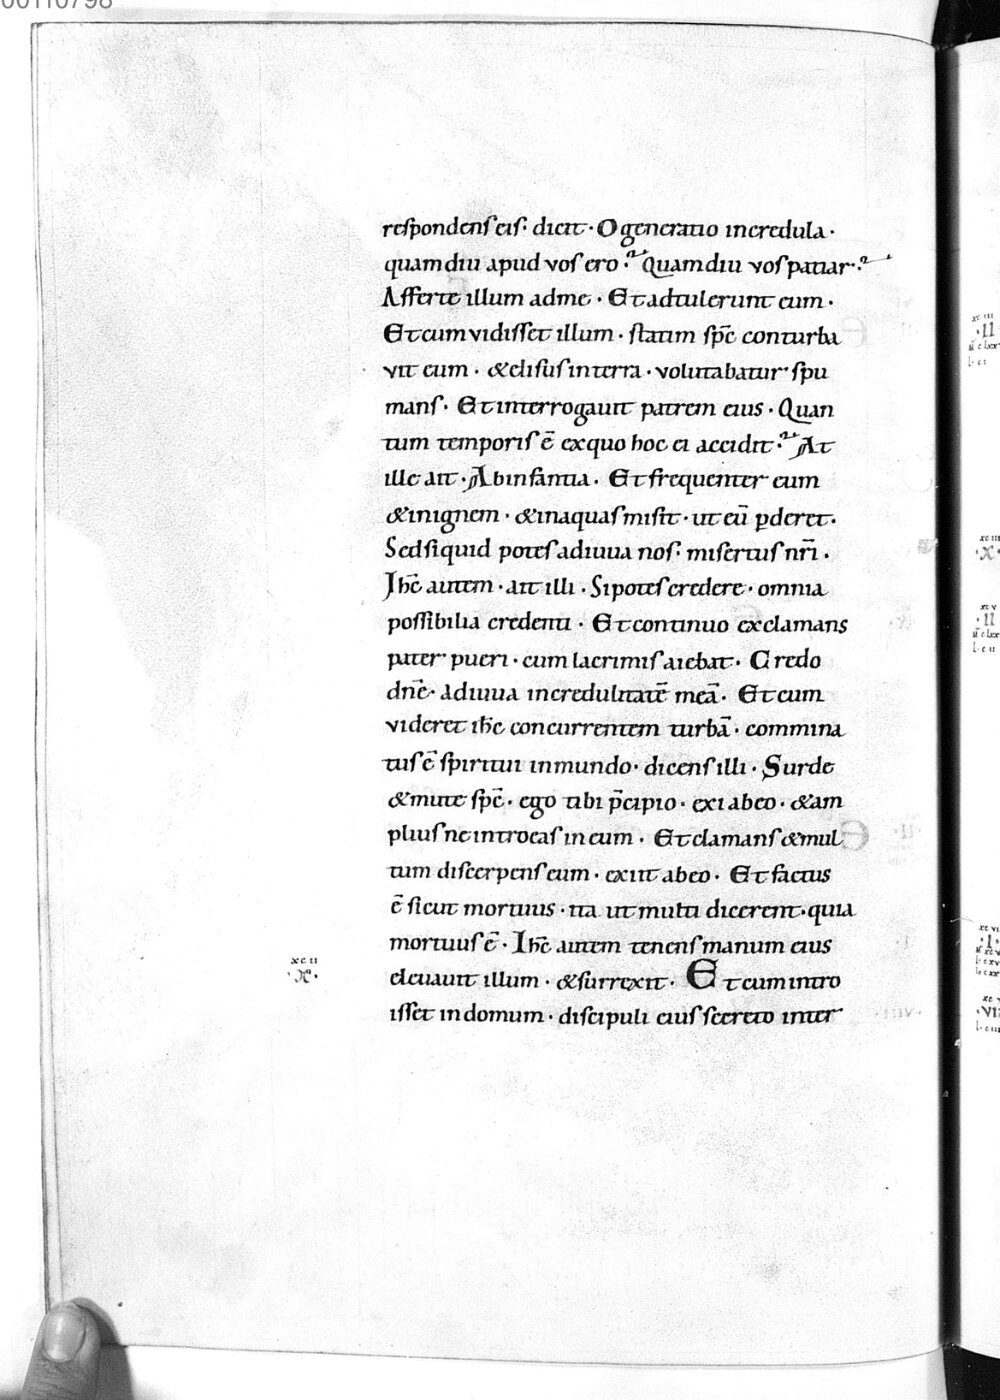 00110798
respondens eis· dicit· O generatio incredula·
quamdiu apud vos ero? Quamdiu vos patiar?
Afferte illum adme· Et adtulerunt eum·
Et cum vidisset illum· statim sp̄c conturba
vit eum· & elisus interra· volutabatur spu
mans· Et interrogauit patrem eius· Quan
tum temporis ē exquo hoc ei accidit? At
ille ait· Ab infantia· Et frequenter eum
& inignem· & inaquas misit· ut eū ꝑderet·
Sed siquid potes adiuua nos· misertus nr̄i·
Ihc̄ autem· ait illi· Si potes credere· omnia
possibilia credenti· Et continuo exclamans
pater pueri· cum lacrimis aiebat· Credo
dnē· adiuua incredulitatē meā· Et cum
videret ihc̄ concurrentem turbā· commina
tus ē spiritui inmundo· dicens illi· Surde
& mute sp̄c· ego tibi p̄cipio· exi abeo· & am
plius ne introeas in eum· Et clamans & mul
tum discerpens eum· exiit abeo· Et factus
ē sicut mortuus· ita ut multi dicerent· quia
mortuus ē· Ihc̄ autem tenens manum eius
eleuauit illum· & surrexit· Et cum intro
isset indomum· discipuli eius secreto inter
xcii
·X·